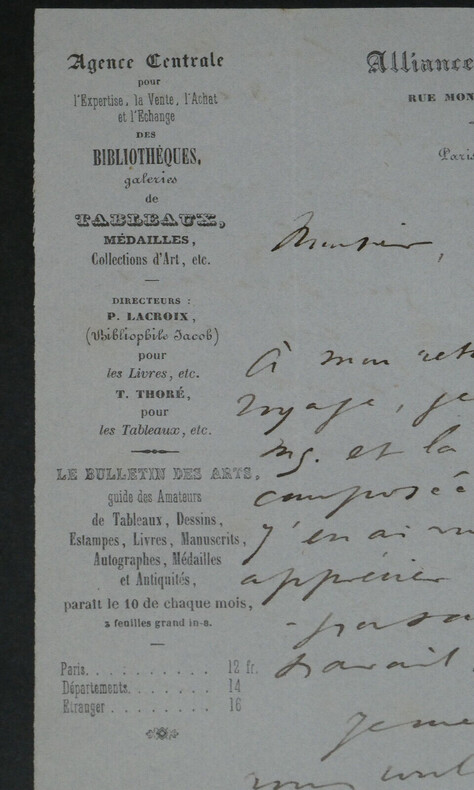 Agence Centrale
pour
l'Expertise, la Vente, l'Achat
et l'Echange
DES
BIBLIOTHÈQUES,
galeries
de
TABLEAUX,
MÉDAILLES,
Collections d'Art, etc.
DIRECTEURS :
P. LACROIX,
(Bibliophile Jacob)
pour
les Livres, etc.
T. THORÉ,
pour
les Tableaux, etc.
LE BULLETIN DES ARTS,
guide des Amateurs
de Tableaux, Dessins,
Estampes, Livres, Manuscrits,
Autographes, Médailles
et Antiquités,
paraît le 10 de chaque mois,
2 feuilles grand in-8.
Paris. . . . . . . . . 12 fr.
Départements. . . . . . . 14
Etranger . . . . . . . . 16
Alliance
RUE MON
Paris
Monsieur,
À mon reto
voyage, je
ms. et la
composée
j'en ai
apprécier
travail